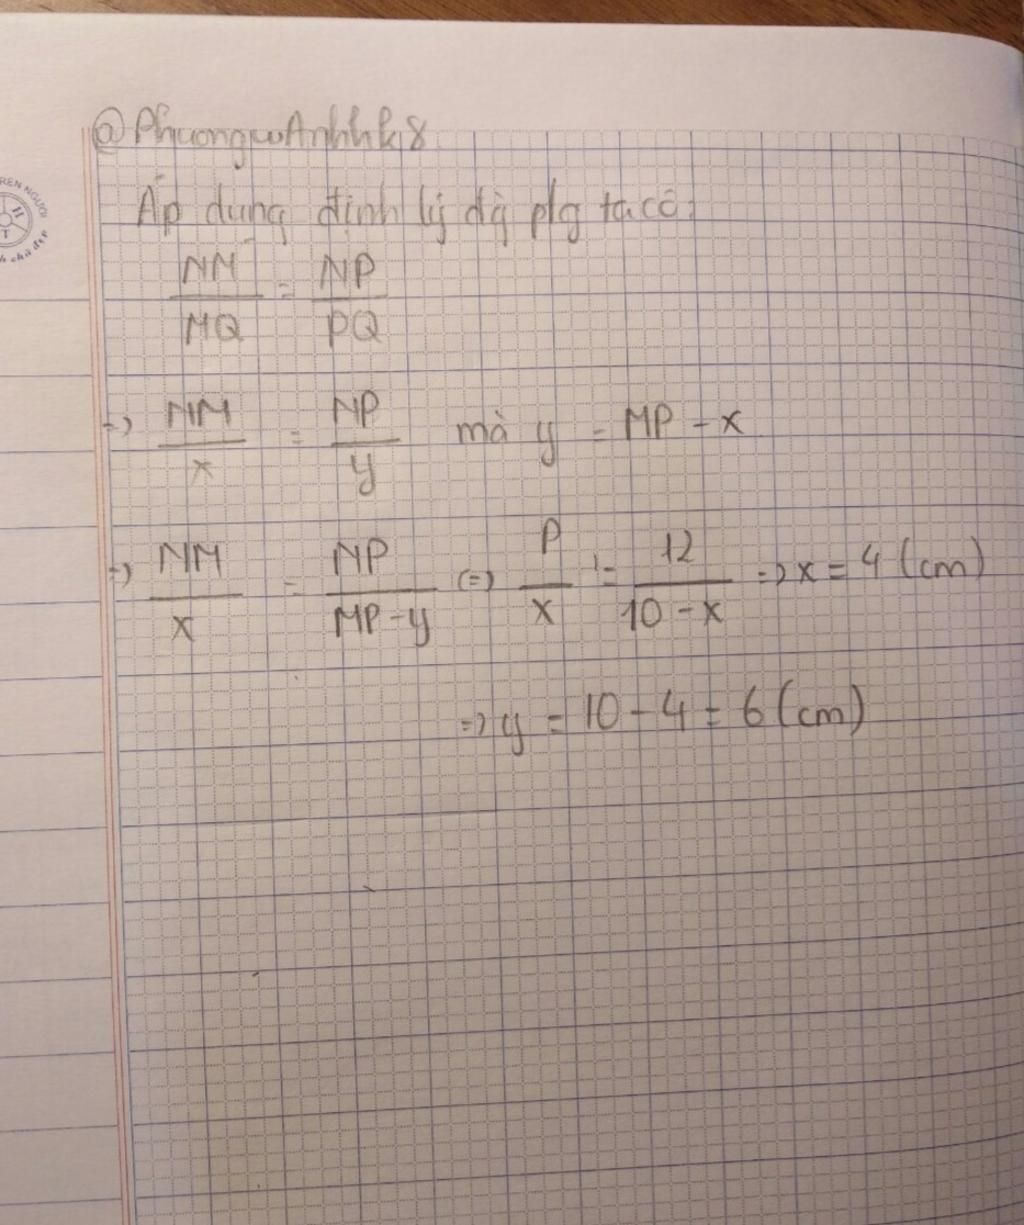 @PhuongwAnhhk8
Áp dụng định lý đg plg ta có:
NM/MQ = NP/PQ
=> NM/x = NP/y mà y = MP - x
=> NM/x = NP/MP-y (=) P/x = 12/10-x => x = 4 (cm)
=> y = 10 - 4 = 6 (cm)
REN NGƯỜI
H
T
h chữ đẹp